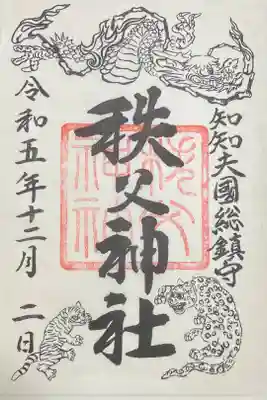 知知夫國総鎮守
秩父神社
令和五年十二月 二日
秩父神社